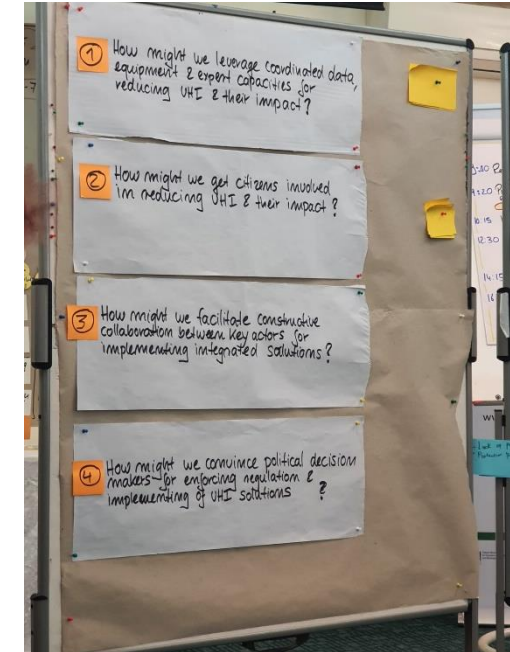 1
How might we leverage coordinated data,
equipment & expert capacities for
reducing UHI & their impact?
2
How might we get citizens involved
in reducing UHI & their impact?
3
How might we facilitate constructive
collaboration between key actors for
implementing integrated solutions?
4
How might we convince political decision
makers for enforcing regulation &
implementing of UHI solutions ?
10:15
12:30
14:15
16